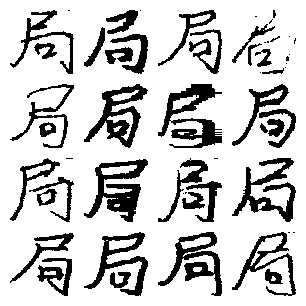 局局局局
局局局局
局局局局
局局局局